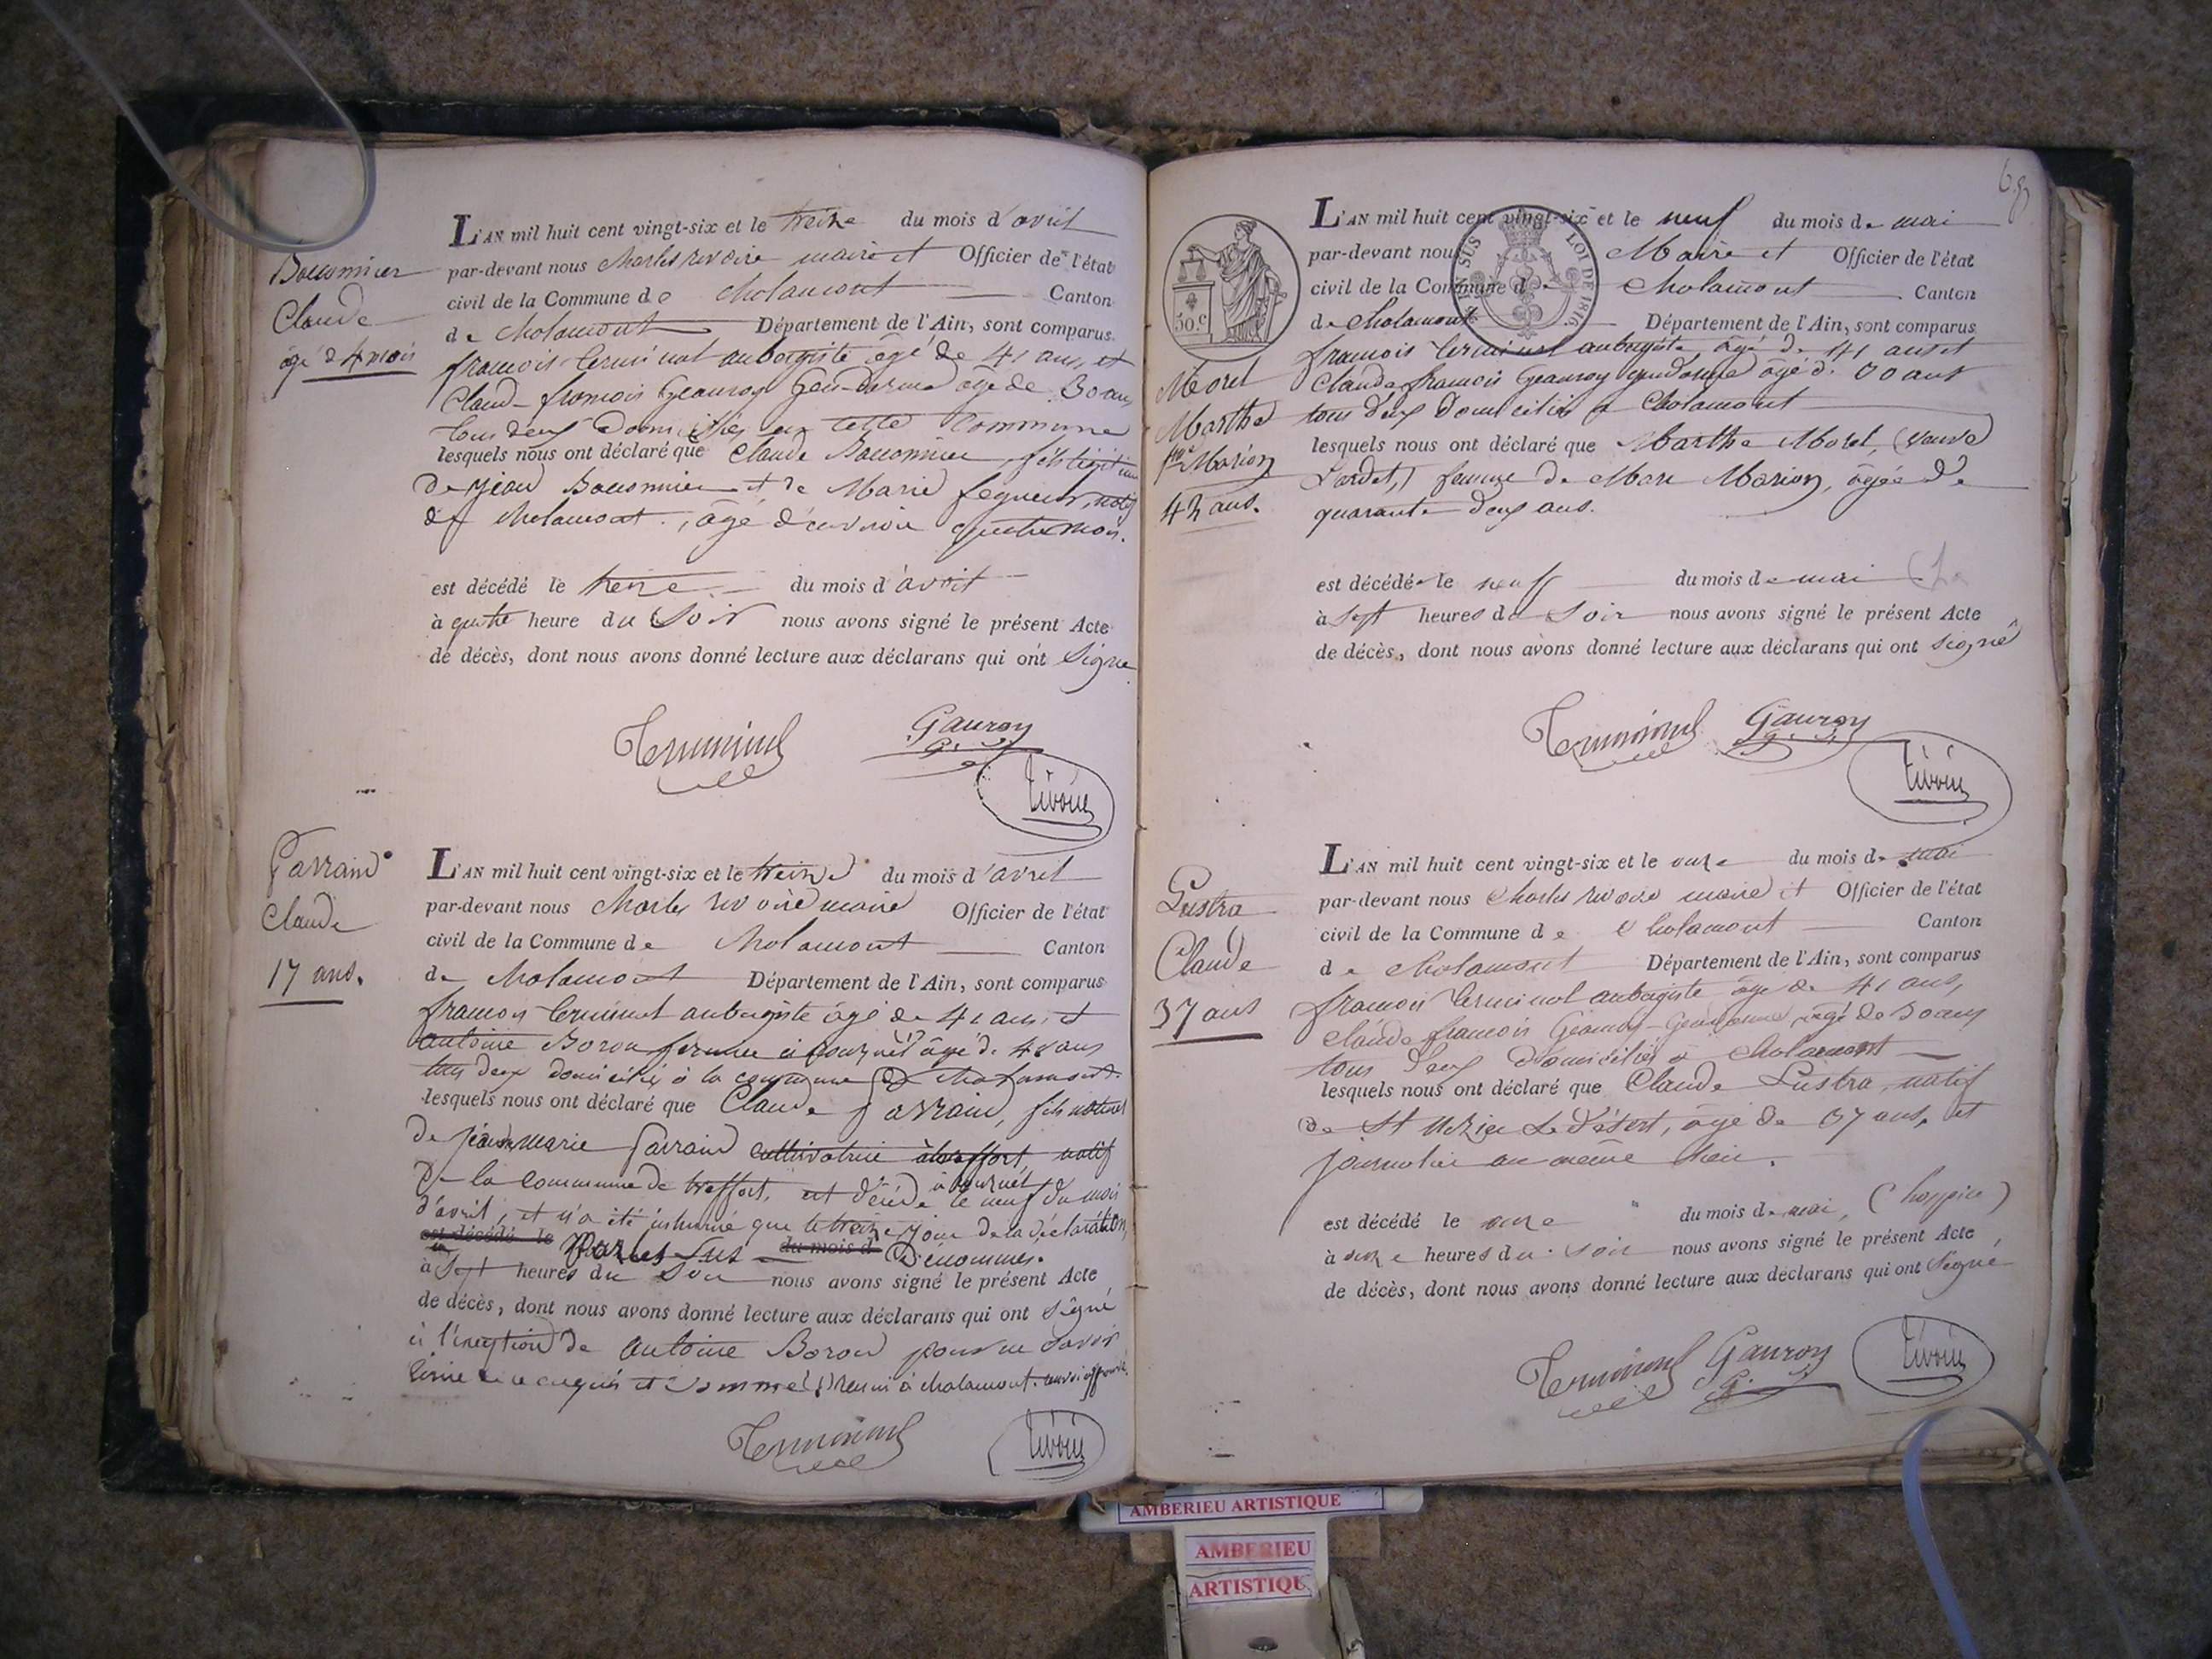 Claude
âgé d 4 mois
L'AN mil huit cent vingt-six et le treize du mois d'avril
par-devant nous Charles rivoire maire et Officier de l'état
civil de la Commune de Chalamont Canton
de Chalamont Département de l'Ain, sont comparus
françois terminal aubergiste âgé de 41 ans, et
Claude françois Geauroy Gendarme âgé de 30 ans
tous deux Domiciliés en cette Commune
lesquels nous ont déclaré que Claude fils légitime
de jean et de Marie natif
de Chalamont, âgé d'environ quatre mois.
est décédé le treize du mois d'avril
à quatre heure du Soir nous avons signé le présent Acte
de décès, dont nous avons donné lecture aux déclarans qui ont Signé
Terminal Gauroy
Rivoire
Garraud
Claude
17 ans.
L'AN mil huit cent vingt-six et le treize du mois d'avril
par-devant nous Charles rivoire maire Officier de l'état
civil de la Commune de Chalamont Canton
de Chalamont Département de l'Ain, sont comparus
françois terminal aubergiste âgé de 41 ans, et
antoine Boron fermier à âgé de 48 ans
tous deux domiciliés à la commune de Chalamont.
lesquels nous ont déclaré que Claude garraud, fils naturel
de jeanne marie garraud cultivatrice à treffort natif
De la commune de treffort, est décédé à le neuf du mois
d'avril, et n'a été inhumé que le treize jour de la déclaration,
est décédé le du mois d Dénommés.
à Sept heures du Soir nous avons signé le présent Acte
de décès, dont nous avons donné lecture aux déclarans qui ont signé
à l'exception de antoine Boron pour ne savoir
écrire de ce enquis et sommé à chalamont.
Terminal Rivoire
68
Morel
Marthe
fme Marion
42 ans.
50.C
EN SUS
LOI DE 1816.
L'AN mil huit cent vingt-six et le neuf du mois de mai
par-devant nous Maire et Officier de l'état
civil de la Commune de Chalamont Canton
de Chalamont Département de l'Ain, sont comparus
françois terminal aubergiste âgé de 41 ans et
Claude françois Geauroy gendarme âgé de 30 ans
tous deux Domiciliés à Chalamont
lesquels nous ont déclaré que Marthe Morel, (veuve
Lardet,) femme de Marc Marion, âgée de
quarante deux ans.
est décédée le neuf du mois de mai
à sept heures du soir nous avons signé le présent Acte
de décès, dont nous avons donné lecture aux déclarans qui ont signé
Terminal Gauroy
Rivoire
Lustra
Claude
37 ans
L'AN mil huit cent vingt-six et le onze du mois de mai
par-devant nous Charles rivoire maire et Officier de l'état
civil de la Commune de Chalamont Canton
de Chalamont Département de l'Ain, sont comparus
françois terminal aubergiste âgé de 41 ans,
Claude françois Geauroy Gendarme âgé de 30 ans
tous deux domiciliés à Chalamont
lesquels nous ont déclaré que Claude Lustra, natif
de St Nizier Le Désert, âgé de 37 ans, et
journalier au même lieu.
est décédé le onze du mois de mai, (hospice)
à onze heures du soir nous avons signé le présent Acte,
de décès, dont nous avons donné lecture aux déclarans qui ont Signé
Terminal Gauroy Rivoire
AMBERIEU ARTISTIQUE
AMBERIEU
ARTISTIQU